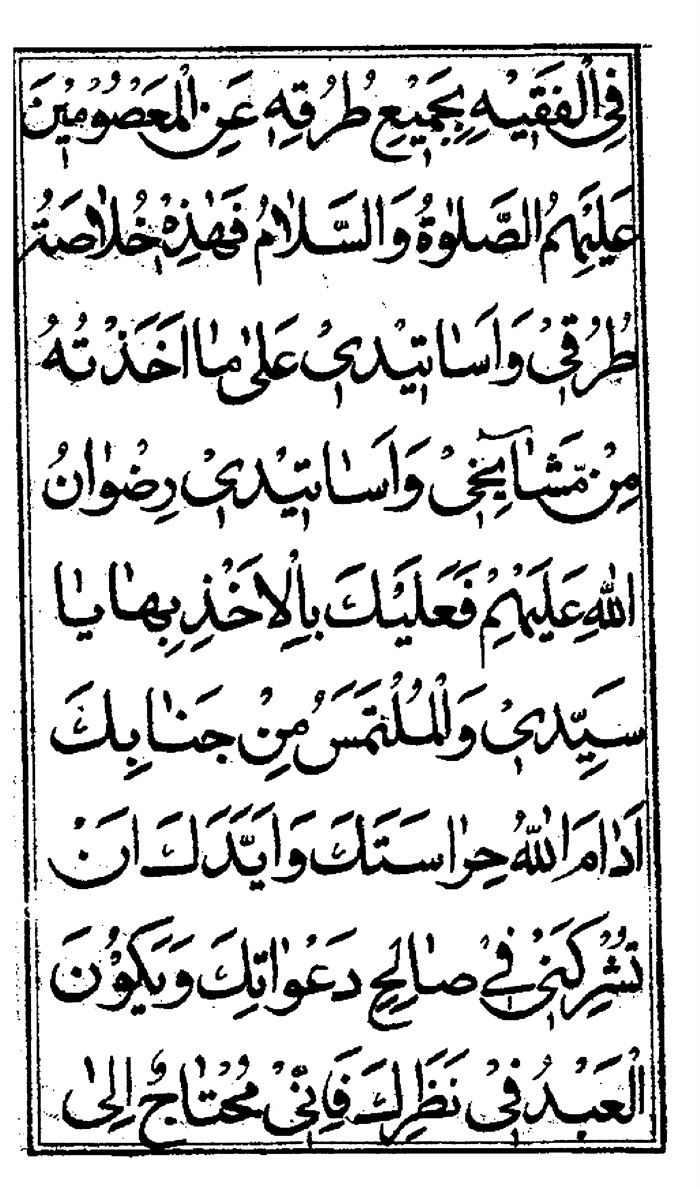 فِى الْفَقِيْهِ بِجَمِيْعِ طُرُقِهٖ عَنِ الْمَعْصُوْمِيْنَ
عَلَيْهِمُ الصَّلٰوةُ وَالسَّلَامُ فَهٰذِهٖ خُلَاصَةُ
طُرُقِىْ وَاَسَاتِيْدِىْ عَلٰى مَا اَخَذْتُهُ
مِنْ مَّشَايِخِىْ وَاَسَاتِيْدِىْ رِضْوَانُ
اللّٰهِ عَلَيْهِمْ فَعَلَيْكَ بِالْاَخْذِ بِهَا يَا
سَيِّدِىْ وَالْمُلْتَمَسُ مِنْ جَنَابِكَ
اَدَامَ اللّٰهُ حِرَاسَتَكَ وَاَيَّدَكَ اَنْ
تُشْرِكَنِىْ فِىْ صَالِحِ دَعْوَاتِكَ وَيَكُوْنَ
الْعَبْدُ فِىْ نَظَرِكَ فَاِنِّىْ مُحْتَاجٌ اِلٰى